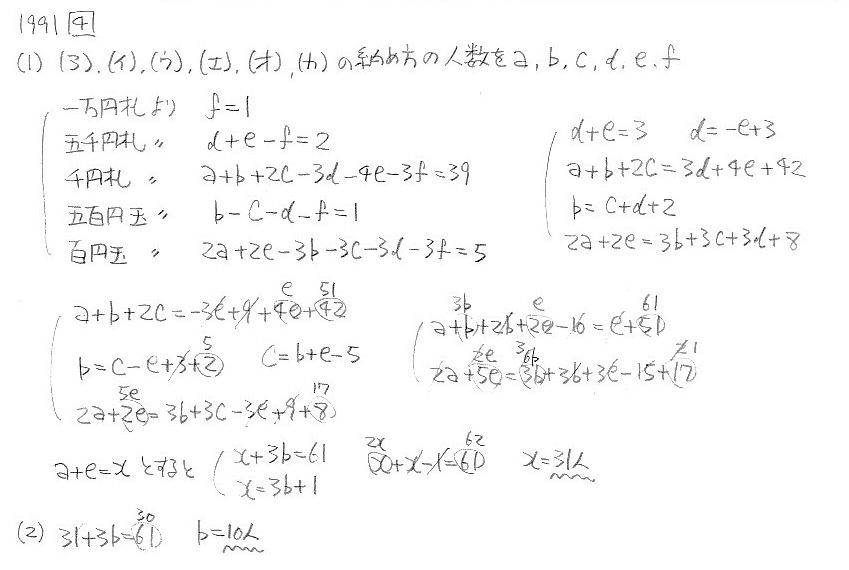 1991 [4]
(1) (ア),(イ),(ウ),(エ),(オ),(カ)の納め方の人数をa,b,c,d,e,f
一万円札より f=1
五千円札〃 d+e-f=2
千円札〃 a+b+2c-3d-4e-3f=39
五百円玉〃 b-c-d-f=1
百円玉〃 2a+2e-3b-3c-3d-3f=5
d+e=3 d=-e+3
a+b+2c=3d+4e+42
b=c+d+2
2a+2e=3b+3c+3d+8
a+b+2c=-3e+9+4e+42 e 51
b=c-e+3+2 5 c=b+e-5
2a+2e=3b+3c-3e+9+8 5e 17
a+b+2b+2e-10=e+51 3b e 61
2a+5e=3b+3b+3e-15+17 2e 3 6b 21
a+e=xとすると x+3b=61
x=3b+1
x+x-1=61 2x 62 x=31人
(2) 31+3b=61 30 b=10人